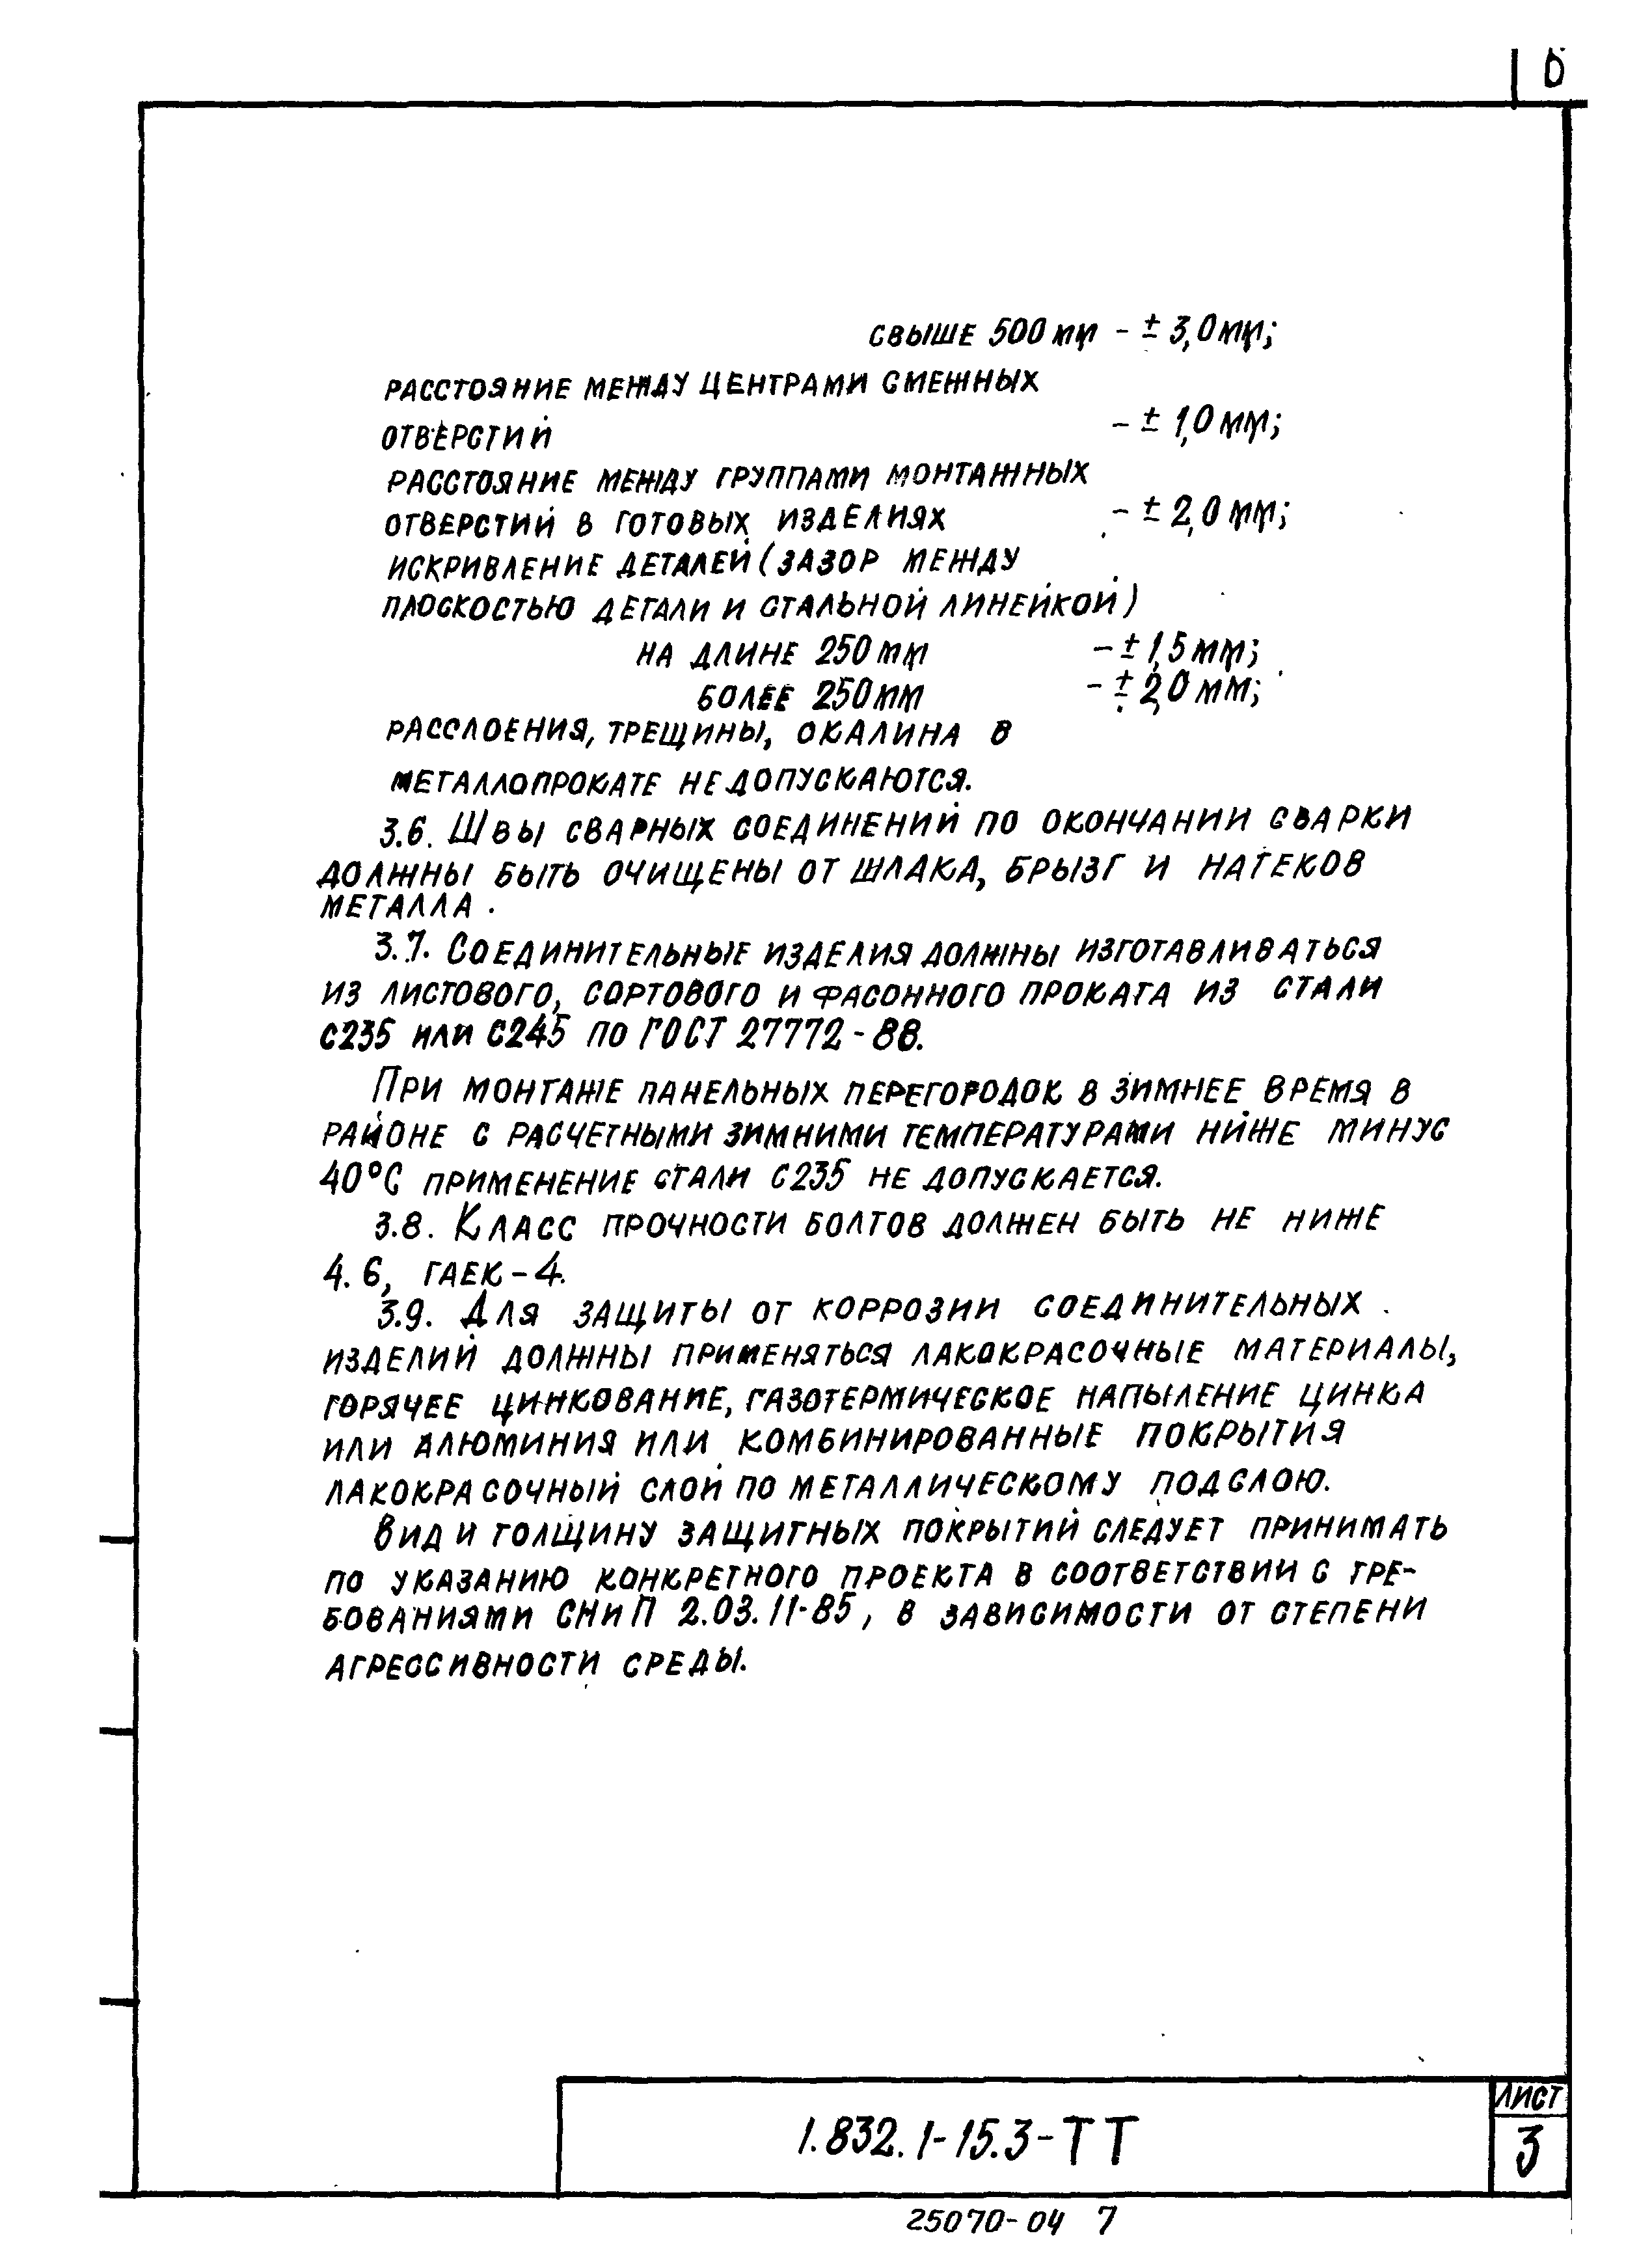 6
свыше 500 мм - ± 3,0 мм;
расстояние между центрами смежных
отверстий - ± 1,0 мм;
расстояние между группами монтажных
отверстий в готовых изделиях - ± 2,0 мм;
искривление деталей (зазор между
плоскостью детали и стальной линейкой)
на длине 250 мм - ± 1,5 мм;
более 250 мм - ± 2,0 мм;
расслоения, трещины, окалина в
металлопрокате не допускаются.
3.6. Швы сварных соединений по окончании сварки
должны быть очищены от шлака, брызг и натеков
металла.
3.7. Соединительные изделия должны изготавливаться
из листового, сортового и фасонного проката из стали
С235 или С245 по ГОСТ 27772-88.
При монтаже панельных перегородок в зимнее время в
районе с расчетными зимними температурами ниже минус
40°С применение стали С235 не допускается.
3.8. Класс прочности болтов должен быть не ниже
4.6, гаек - 4.
3.9. Для защиты от коррозии соединительных
изделий должны применяться лакокрасочные материалы,
горячее цинкование, газотермическое напыление цинка
или алюминия или комбинированные покрытия
лакокрасочный слой по металлическому подслою.
Вид и толщину защитных покрытий следует принимать
по указанию конкретного проекта в соответствии с тре-
бованиями СНиП 2.03.11-85, в зависимости от степени
агрессивности среды.
1.832.1-15.3-ТТ
Лист
3
25070-04 7